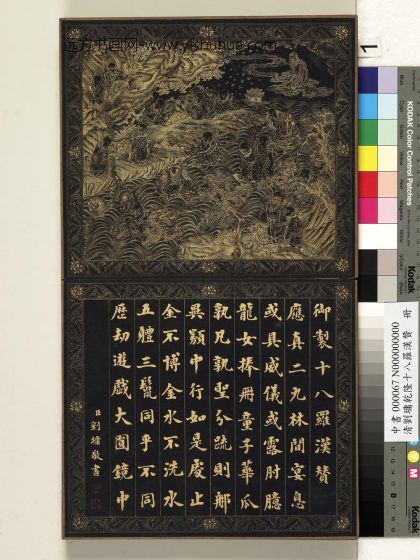 远方书画网-www.yfshuhua.com
御製十八羅漢贊
應真二九林間宴息
或具威儀或露肘臆
龍女捧冊童子華瓜
孰凡孰聖分疏則那
異類中行如是處止
金不博金水不洗水
五體三鬘同乎不同
歷劫遊戲大圓鏡中
臣劉墉敬書
1
KODAK Color Control Patches
Blue
Cyan
Green
Yellow
Red
Magenta
White
Kodak
中書000067N000000000
清劉墉乾隆十八羅漢贊 冊